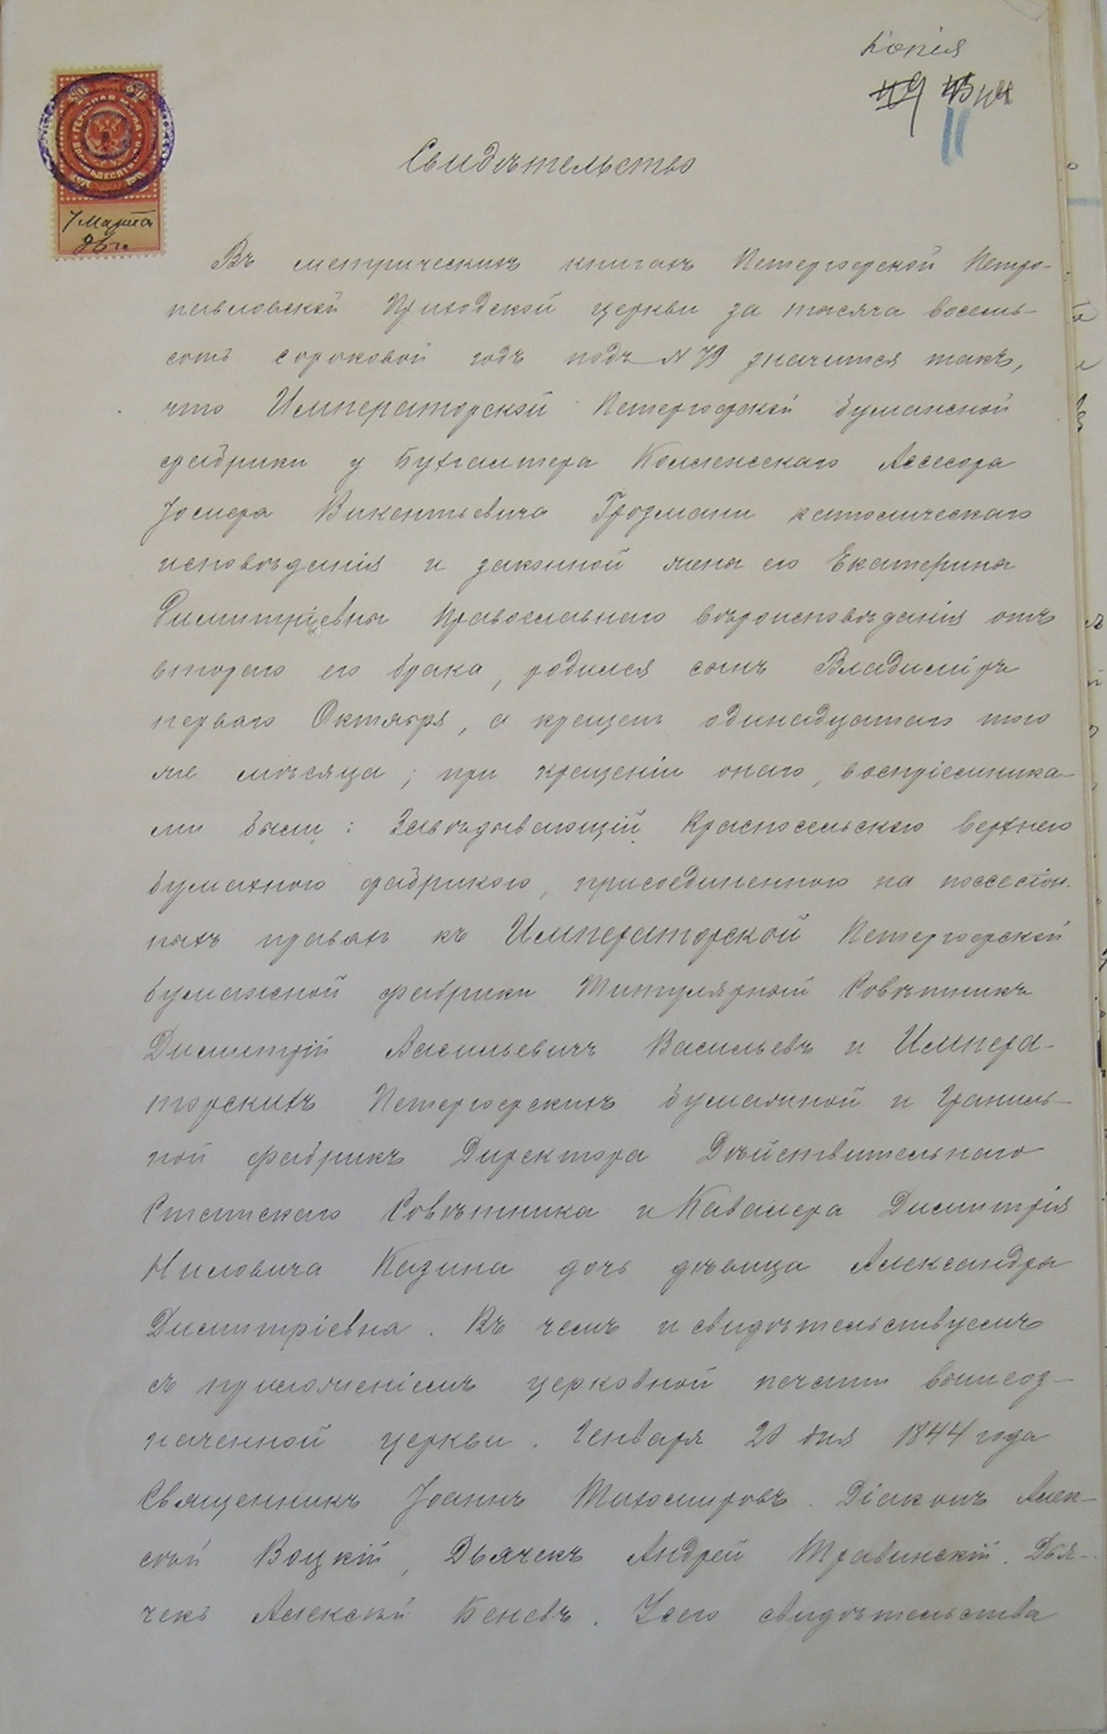 Копія
11
80 80
ГЕРБОВАЯ МАРКА
7 Марта
96 г.
Свидѣтельство
Въ метрическихъ книгахъ Петергофской Петро-
павловской Приходской церкви за тысяча восемь-
сотъ сороковой годъ подъ № 79 значится такъ,
что Императорской Петергофской бумажной
фабрики у Бухгалтера Коллежскаго Ассесора
Іосифа Викентьевича Грозмани католическаго
исповѣданія и законной жена его Екатерина
Димитріевна Православнаго вѣроисповѣданія отъ
втораго его брака, родился сынъ Владиміръ
перваго Октября, а крещенъ одинадцатаго того
же мѣсяца; при крещеніи онаго, воспріемника-
ми были: Завѣдывающій Красносельскою верхнею
бумажною фабрикою, присоединенною на поссесіон-
ныхъ правахъ къ Императорской Петергофской
бумажной фабрики Титулярный Совѣтникъ
Димитрій Васильевичъ Васильевъ и Импера-
торскихъ Петергофскихъ бумажной и Граниль-
ной фабрикъ Директора Дѣйствительнаго
Статскаго Совѣтника и Кавалера Димитрія
Ниловича Казина дочь дѣвица Александра
Димитріевна. Въ чемъ и свидѣтельствуемъ
съ приложеніемъ церковной печати вышеоз-
наченной церкви. Генваря 20 дня 1844 года
Священникъ Іоаннъ Тихомировъ. Діаконъ Алек-
сѣй Воцкій, Дьячекъ Андрей Травинскій. Дья-
чекъ Алексѣй Беневъ. У сего свидѣтельства